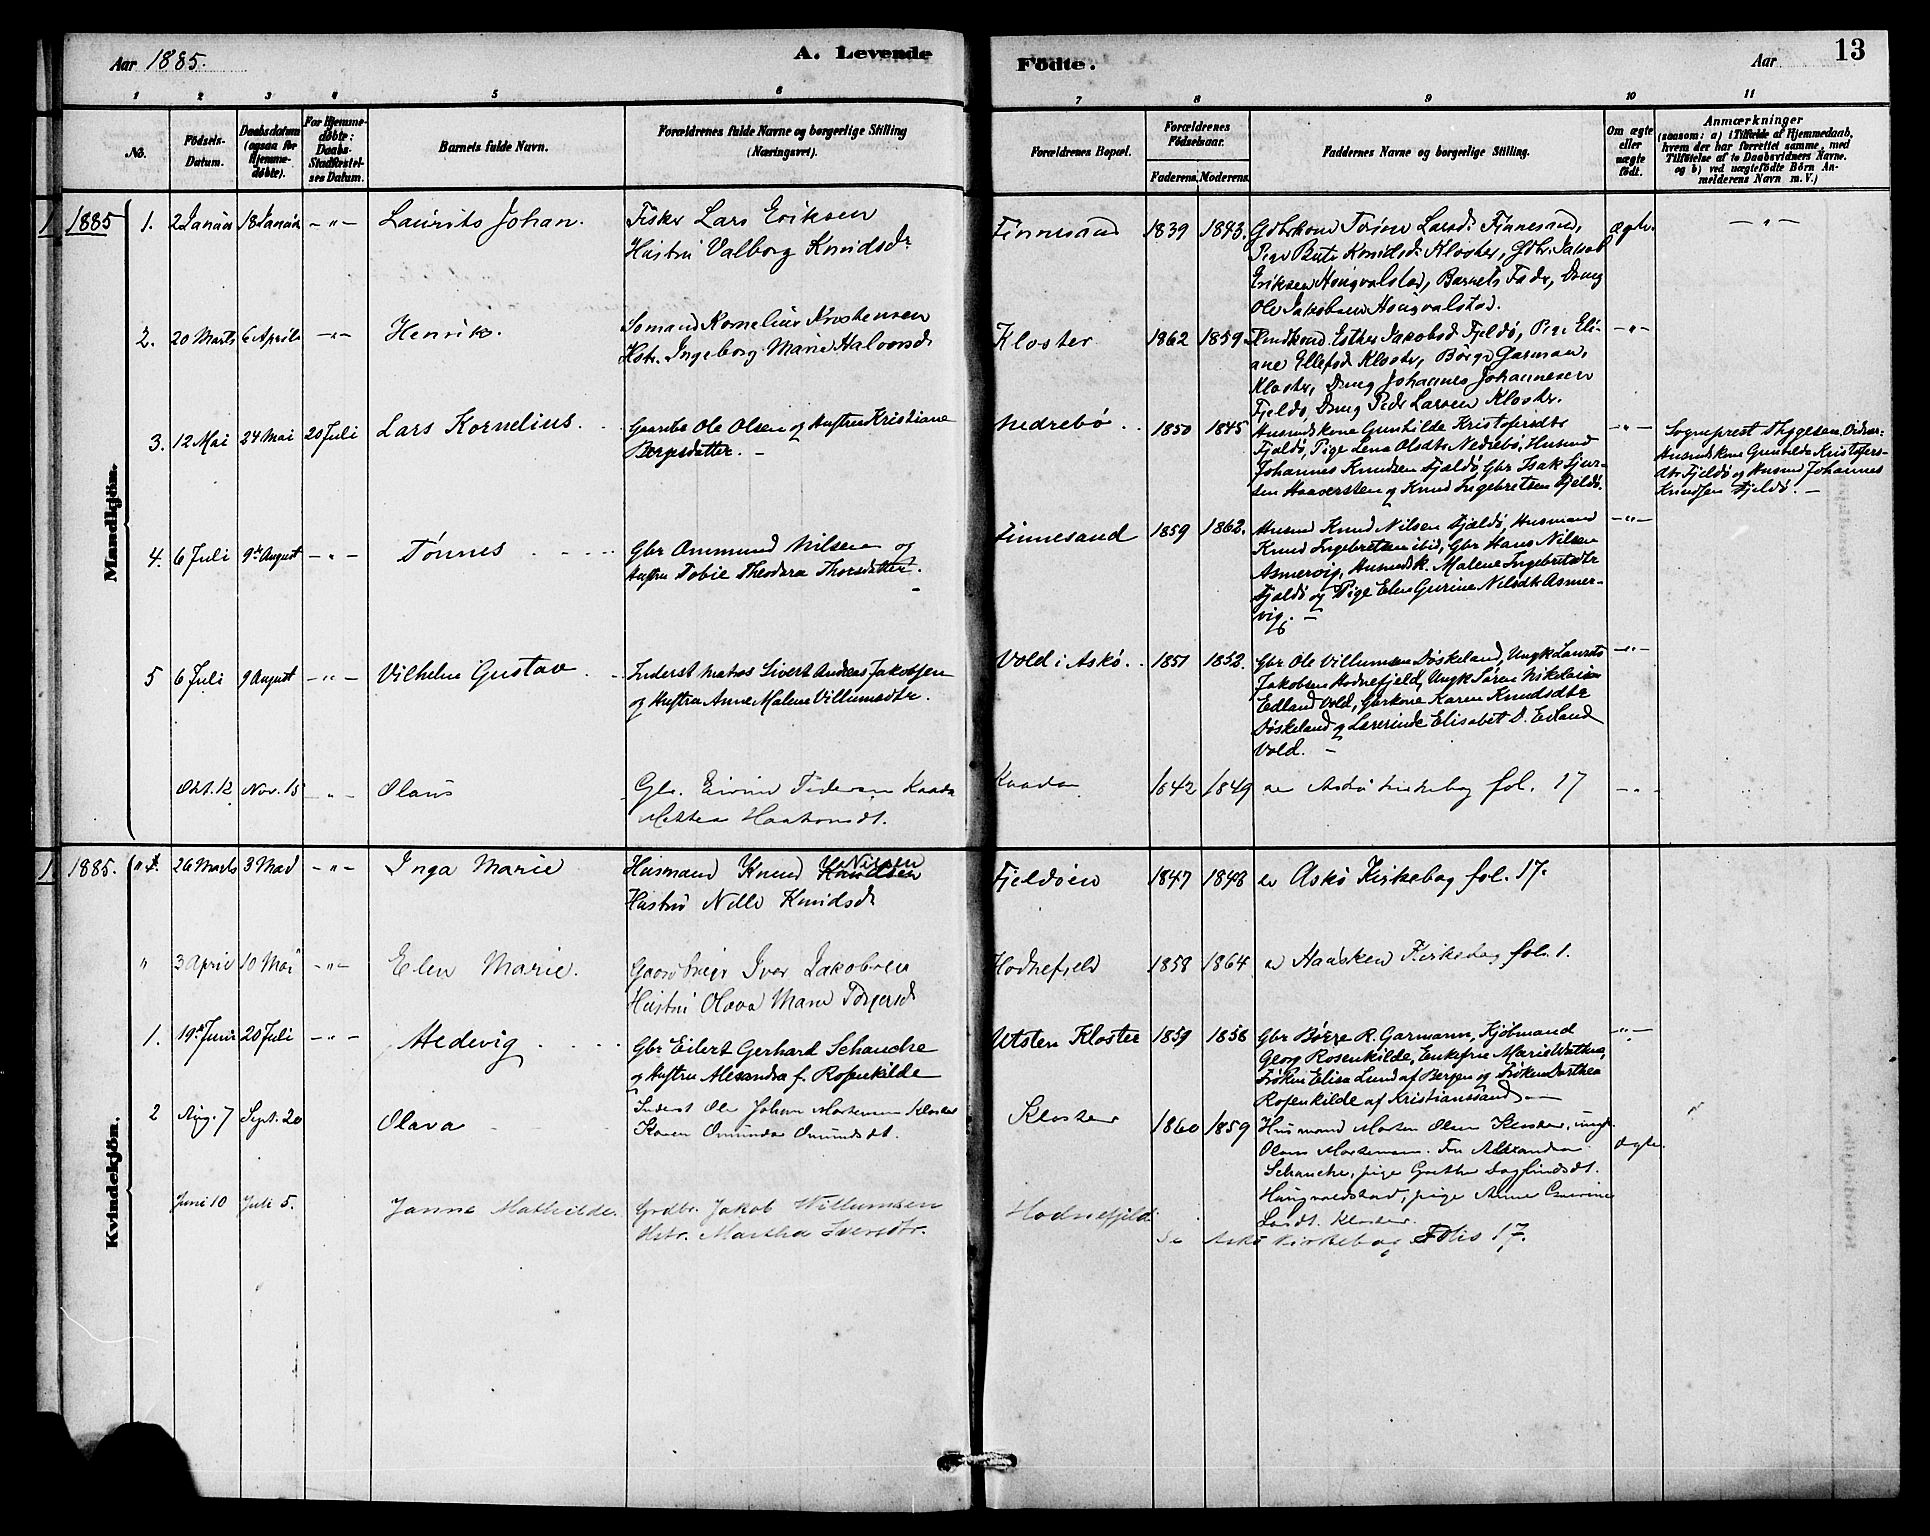 Aar 1885.
A. Levende
Födte.
Aar
13
1 2 3 4 5 6 7 8 9 10 11
No.
Födsels-
Datum.
Daabsdatum
(ogsaa for
Hjemme-
döbte).
For Hjemme-
döbte:
Daabs-
Stadfæstel-
ses Datum.
Barnets fulde Navn.
Forældrenes fulde Navne og borgerlige Stilling
(Næringsvei).
Forældrenes Bopæl.
Forældrenes
Födselsaar.
Faderens. Moderens.
Faddernes Navne og borgerlige Stilling.
Om ægte
eller
uægte
födt.
Anmærkninger
(saasom: a) i Tilfælde af Hjemmedaab,
hvem der har forrettet samme, med
Tilföielse af to Daabsvidners Navne.
og b) ved uægtefödte Börn An-
melderens Navn m. V.)
Mandkjön.
1 1885 1. 2 Januar 18 Januar -"- Laurits Johan.
Fisker Lars Eriksen
Hustru Valborg Knudsdr
Finnesand 1839 1843.
Gbrkone Larsd: Finnesand,
Pige Knudsd: Kloster, Gbr. Jakob
Eriksen Hougvalstad, Barnets Fader, Dreng
Ole Jakobsen Hougvalstad.
Ægte. -"-
2. 20 Marts 6 April -"- Henrik.
Sømand Kornelius Kristensen
Hstr. Ingeborg Marie Halvorsd
Kloster 1862 1859.
Esther Jakobsd Fjeldö, Pige Eli-
ane Ellefsd Kloster, Börge Garman,
Kloster, Dreng Johannes Johannesen
Fjeldö, Dreng Peder Larsen Kloster.
-"-
3. 12 Mai 24 Mai 20 Juli Lars Kornelius.
Gaardbr Ole Olsen og Hustru Kristiane
Borgesdatter. -
Nedrebö 1850 1845
Husmdskone Gunhilde Kristofersdtr
Fjeldö, Pige Lena Olsdtr Nedrebö, Husmd
Johannes Knudsen Fjeldö, Gbr Isak Sjur-
sen Haaversten og Knud Ingebretsen Fjeldö.
-"-
Sogneprest Thygesen. Vidner:
Husmdskone Gunhilde Kristofers-
dtr Fjeldö og Husmd Johannes
Knudsen Fjeldö. -
4. 6 Juli 9de August -"- Tønnes
Gbr Ommund Nilsen og
Hustru Tobie Theodora Thorsdatter.
Finnesand 1859 1862.
Husmd Knud Nilsen Fjældö, Husmand
Knud Ingebretsen ibid, Gbr Hans Nilsen
Asmervig, Husmdsk. Malene Ingebretsdtr
Fjældö og Pige Elen Gurine Nilsdtr Asmer-
vig. -
-"-
5 6 Juli 9 August -"- Vilhelm Gustav
Inderst Matros Sivert Andreas Jakobsen
og Hustru Anne Malene Villumsdtr.
Vold i Askö. 1851 1852.
Gbr Ole Villumsen Döskeland, Ungk Laurits
Jakobsen Hodnefjeld, Ungk Sören Nikolai
Edland Vold, Gbrkone Karen Knudsdtr
Döskeland og Lærerinde Elisabet D. Edland
Vold. -
-"-
Okt. 12 Nov. 15 -"- Olaus
Gbr. Pedersen Kaada
Mettea
Kaada 1842 1849 se Askö Kirkebog fol. 17 -"-
Kvindekjön.
1 1885. 26 Marts 3 Mai -"- Inga Marie
Husmand Knud Knudsen Nilsen
Hustru Nille Knudsd
Fjeldöen 1847 1848 se Askö Kirkebog fol. 17.
" 3 April 10 Mai -"- Elen Marie.
Gaardbruger Iver Jakobsen
Hustru Olava Marie
Hodnefjeld 1858 1864 se Haasken Kirkebog fol. 1.
1. 19de Juni 20 Juli -"- Hedevig
Gbr Eilert Gerhard Schanche
og Hustru Alexandra f. Rosenkilde
Utsten Kloster 1859 1858
Gbr Börre R. Garmann, Kjöbmand
Georg Rosenkilde, Enkefrue Marie Watne,
Fröken Elisa Lund af Bergen og Fröken Dorthea
Rosenkilde af Kristianssand. -
-"-
2 Aug. 7 Sept. 20 Olava
Inderst Ole Johan Mortensen Kloster
Karen Omunda Omundsdt.
Kloster 1860 1859
Husmand Morten Olsen Kloster, ungk.
Olaus Mortensen. Fru Alexandra
Schanche, pige Grethe
Haugvaldstad, pige Anne
Larsdt. Kloster.
ægte.
Juni 10 Juli 5. Janna Mathilde.
Grdbr. Jakob Willumsen
Hstr. Martha Iversdtr.
Hodnefjeld
Se Askö Kirkebog Folio 17.